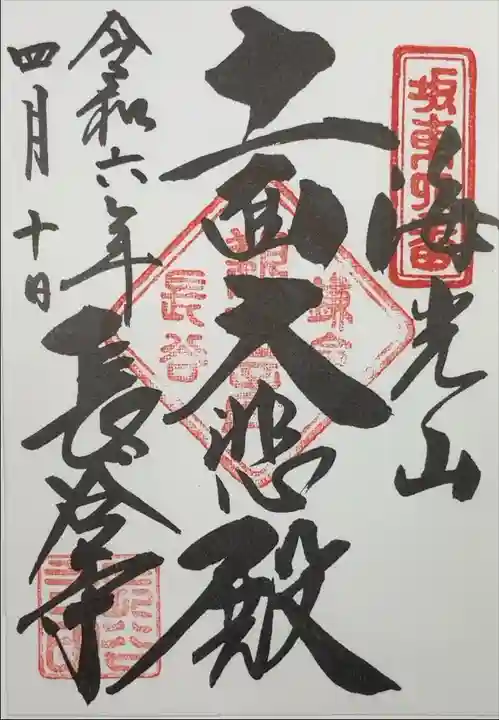 坂東四番
海光山
十一面大悲殿
鎌倉
長谷
長谷寺
令和六年
四月十日